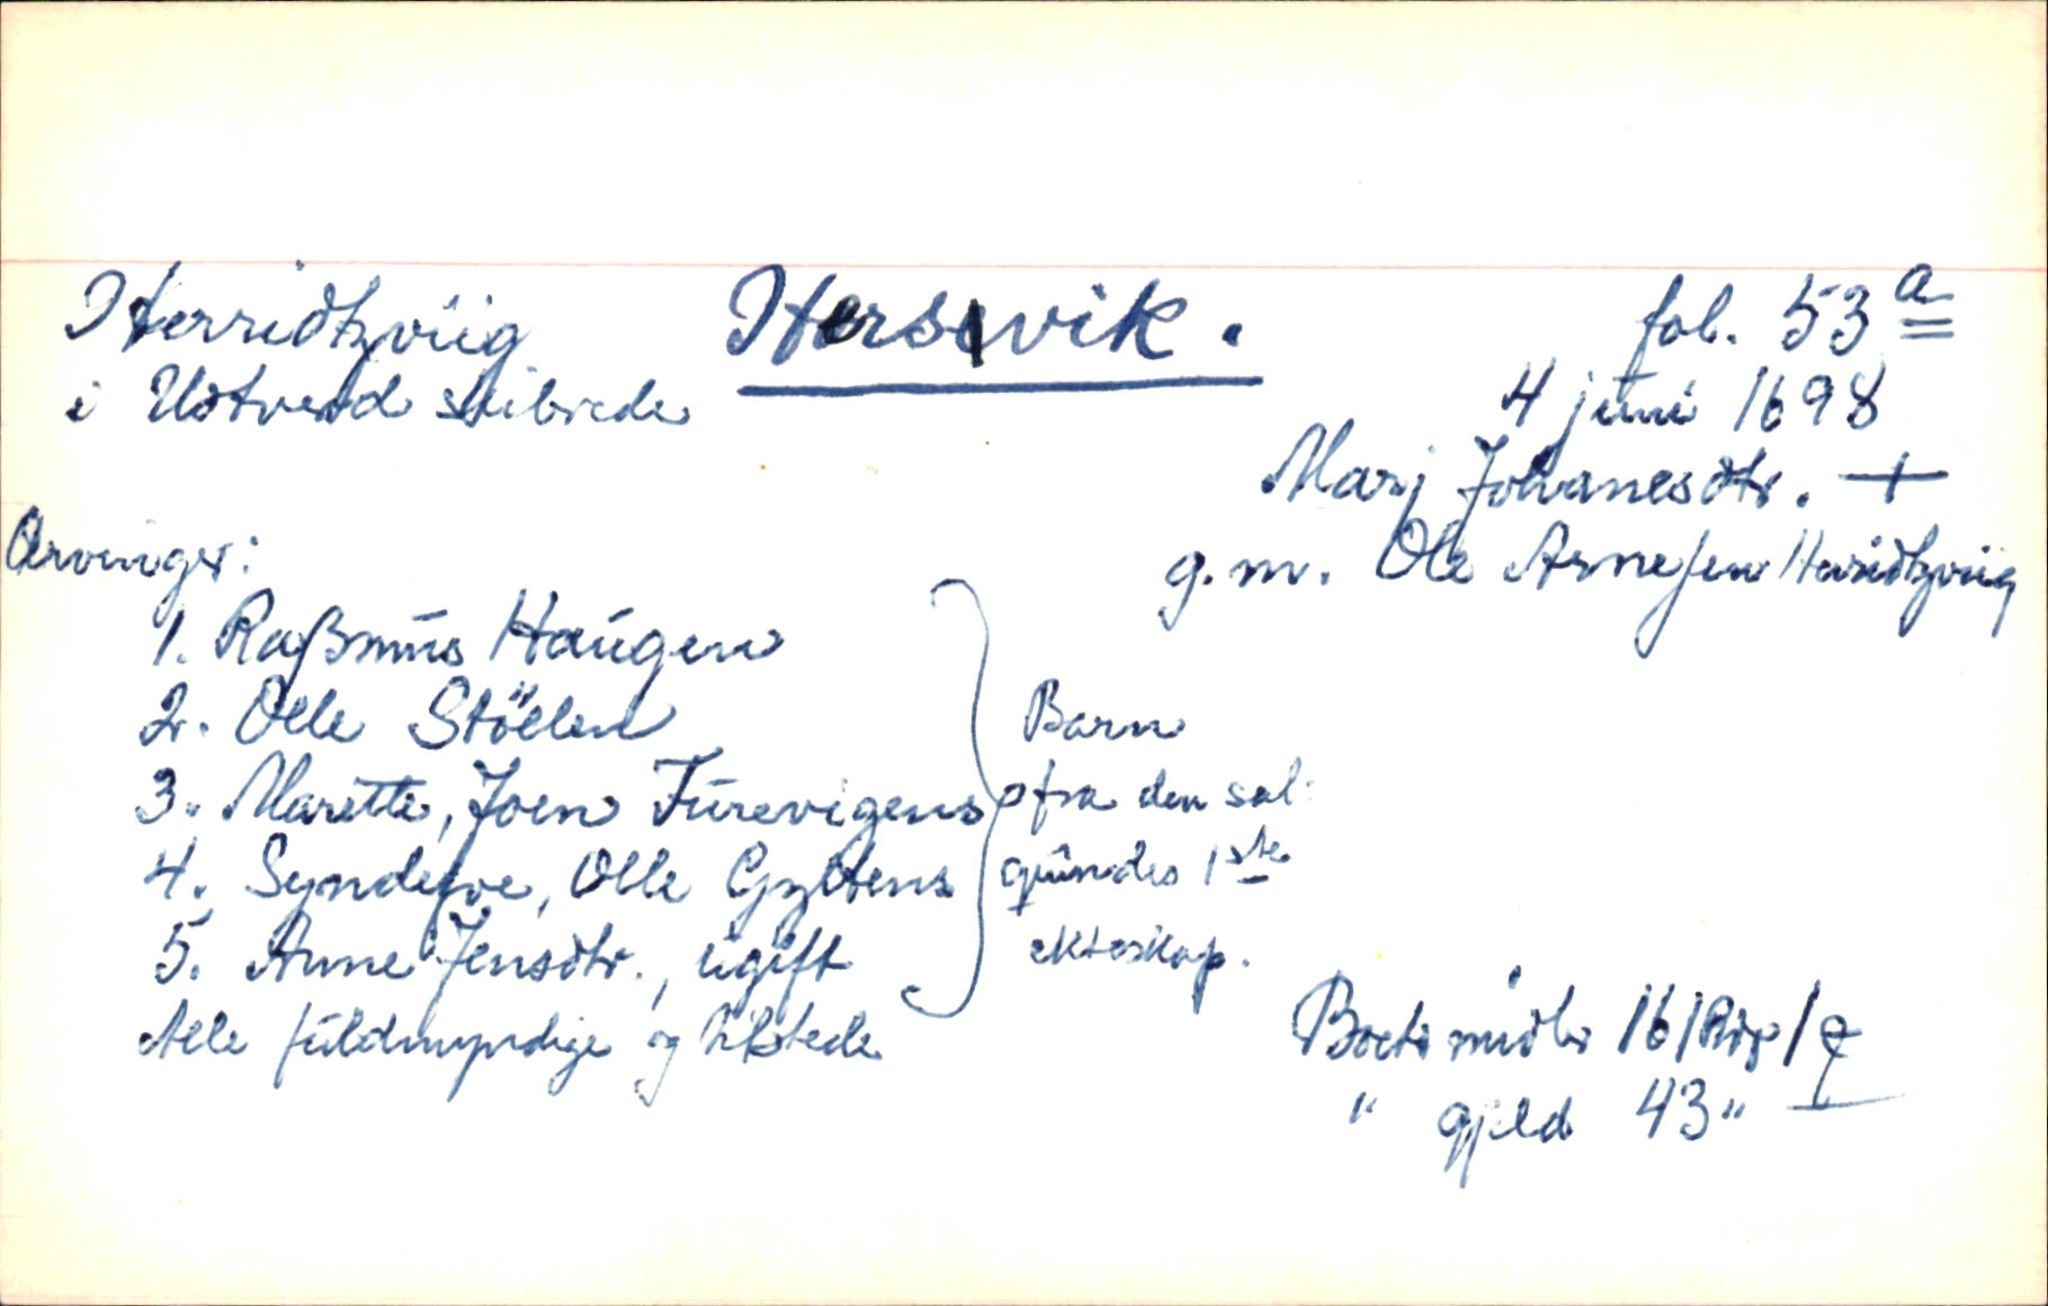 Herridtzviig Hersvik. fol. 53 a
i Utvend skibrede
4 juni 1698
Marj Johanesdtr. +
g.m. Ole Arnesen Herridtzviig
Arvinger:
1. Raßmus Haugen
2. Olle Stöllen
3. Marette, Joen Furevigens
4. Syndefve, Olle Gyltens
5. Anne Jensdtr., ugift
Barn
fra den sal:
quindes 1ste
ekteskap.
Alle fuldmyndige og tilstede
Boets midler 16 1
" gjeld 43 "